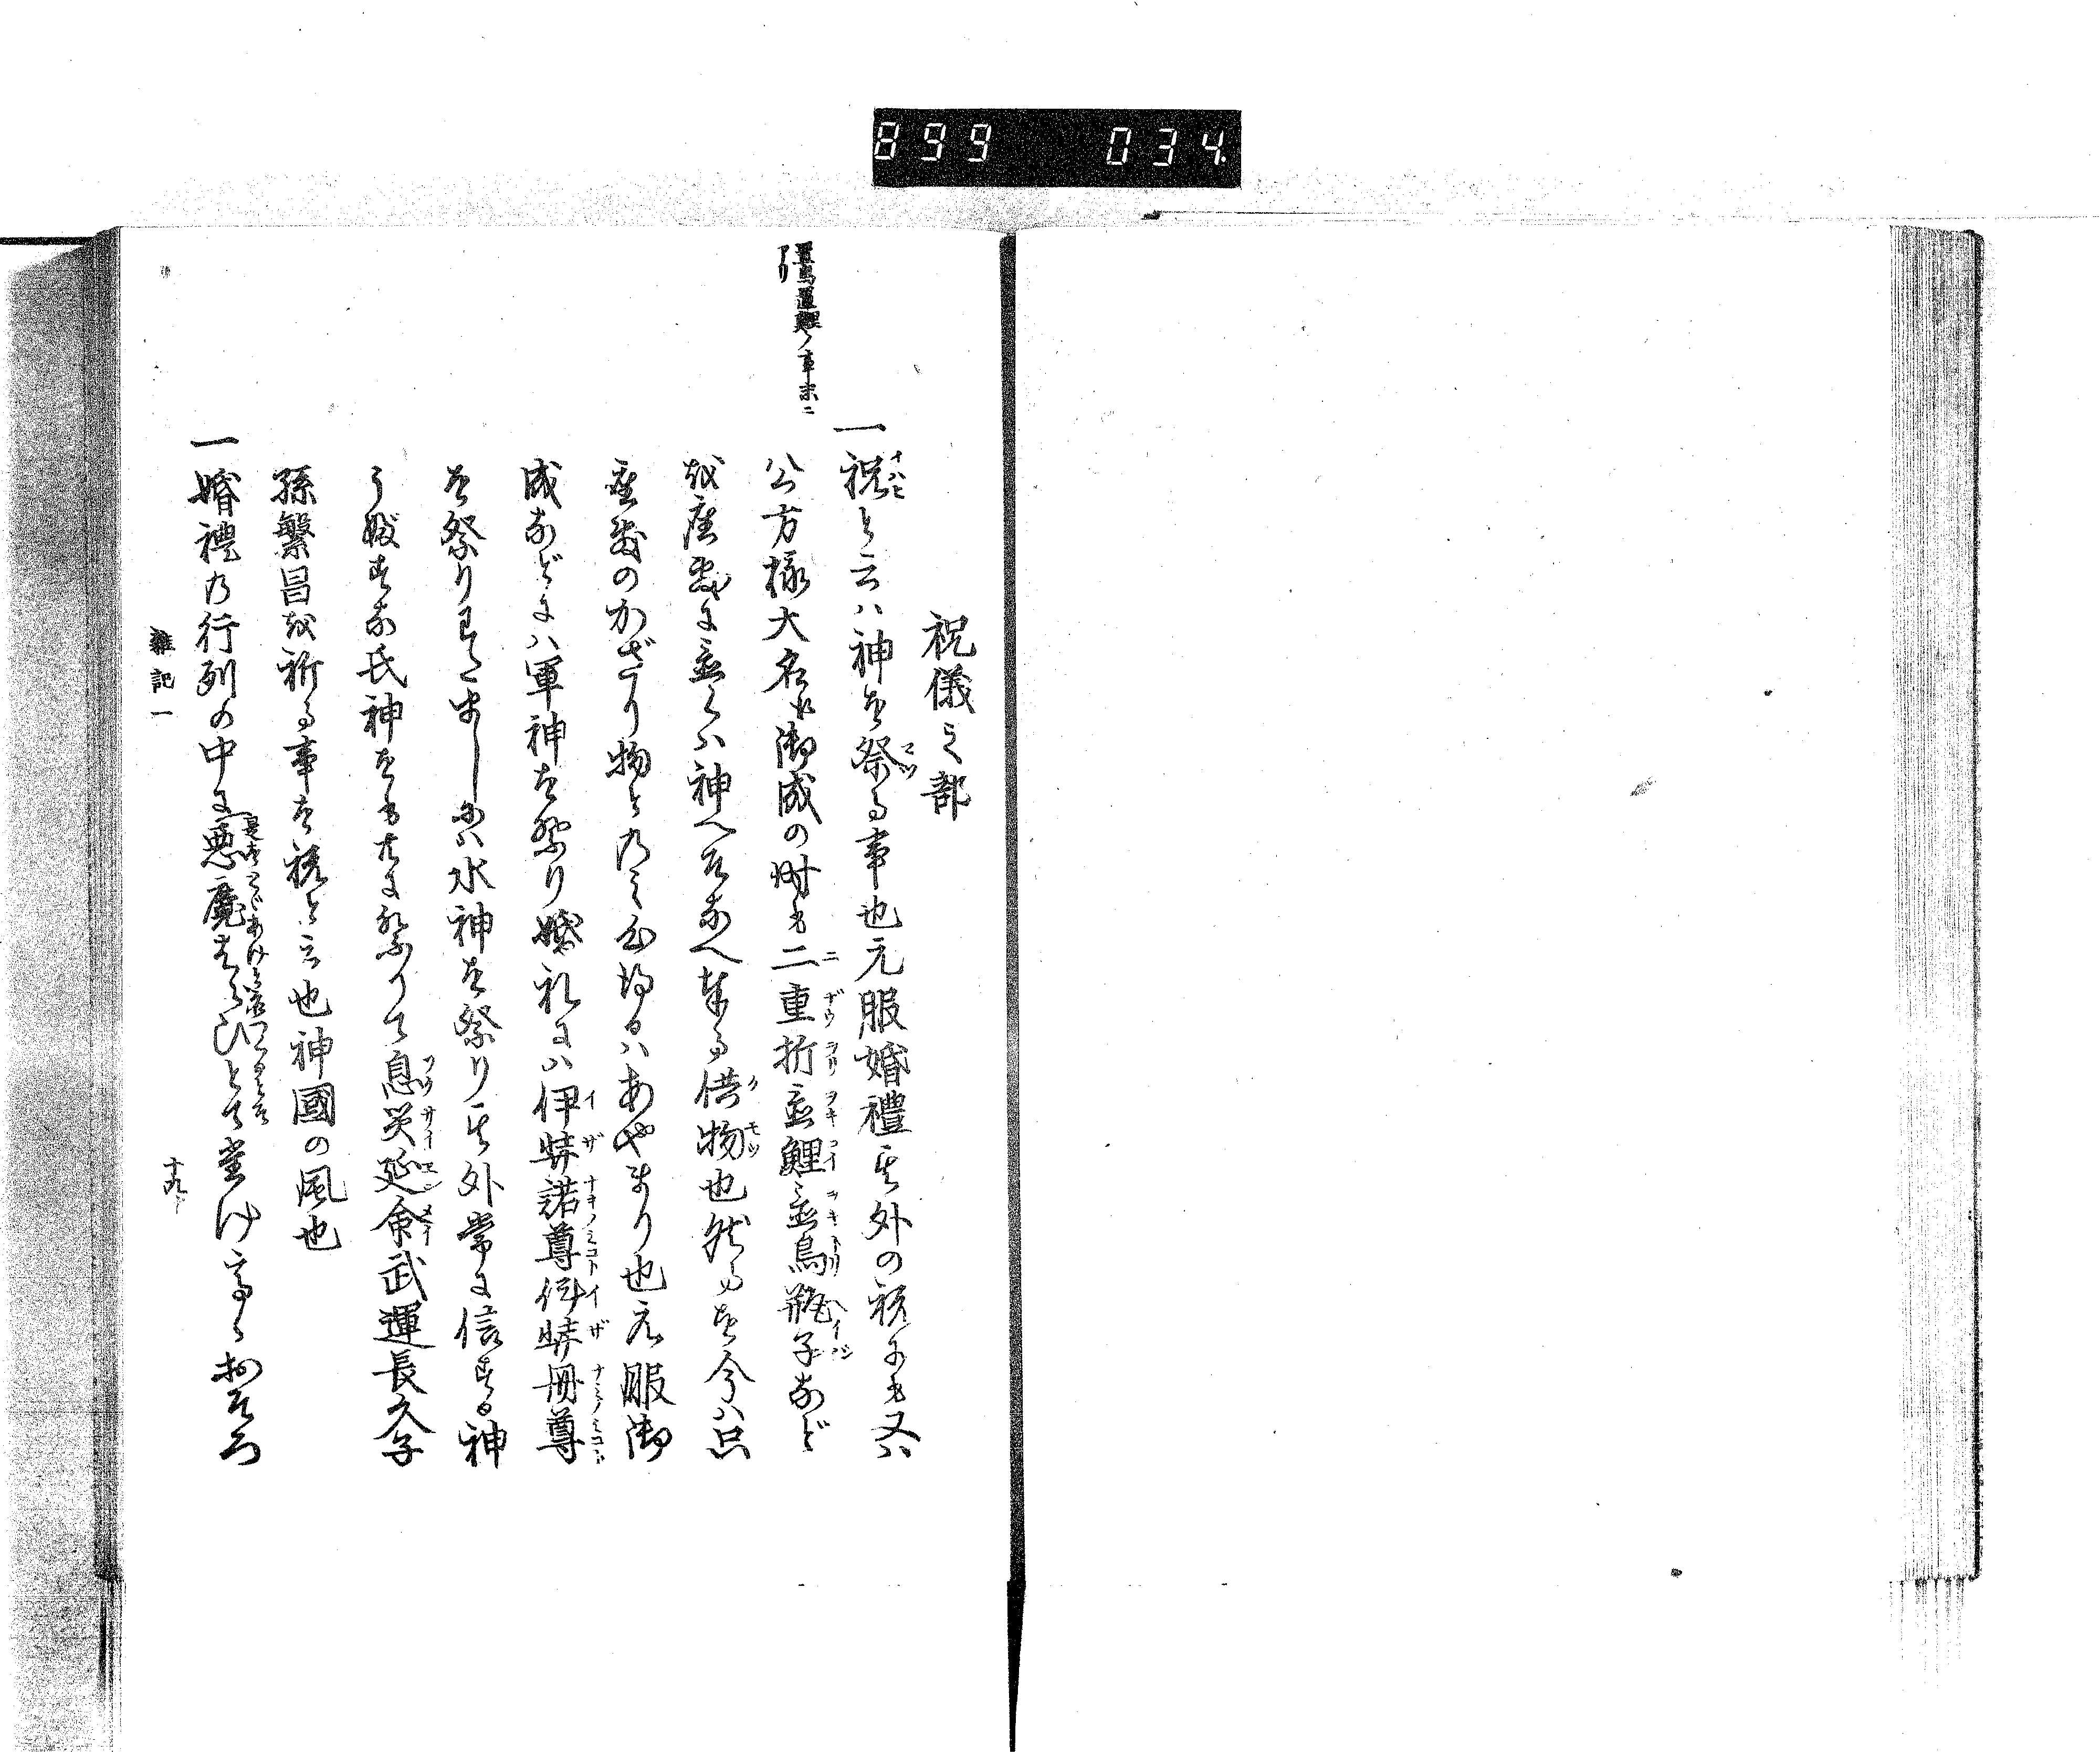 899 034
祝儀之部
置鳥置鯉ノ事末ニ
アリ
一祝と云ハ神を祭る事也元服婚禮其外の祝にも又ハ
公方様大名に御成の時も二重折置鯉置鳥瓶子など
を座敷に置くハ神へそなへ奉る供物也然るを今ハ只
座敷のかざり物と乃ミ心得るハあやまり也元服御
成などにハ軍神を祭り婚礼にハ伊弉諾尊伊弉冊尊
を祭りわたましにハ水神を祭り其外常に信する神
うぶすな氏神をも共に祭りて息災延命武運長久子
孫繁昌を祈る事を祝と云也神國の風也
一婚禮乃行列の中に悪魔はらひとて
雑記一
十九